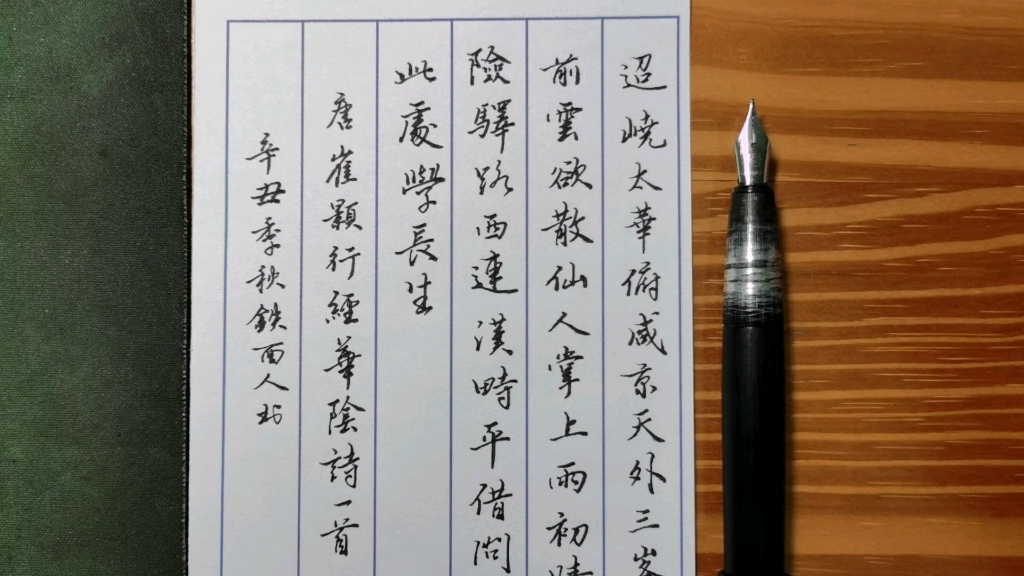 迢嶢太華俯咸京天外三峯
前雲欲散仙人掌上雨初晴
險驛路西連漢畤平借問
此處學長生
唐崔顥行經華陰詩一首
辛丑季秋鉄面人